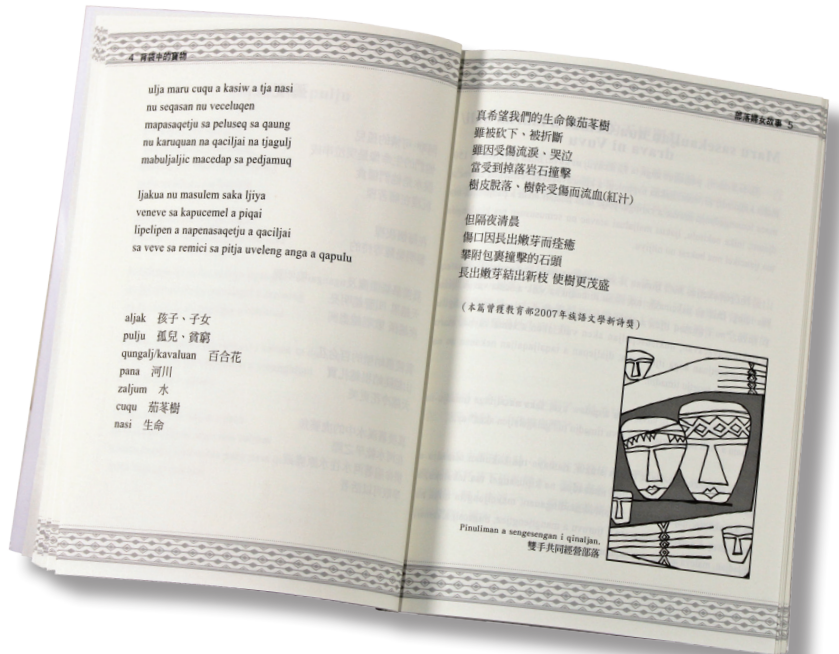 4 背袋中的寶物
ulja maru cuqu a kasiw a tja nasi
nu seqasan nu veceluqen
mapasaqetju sa peluseq sa qaung
nu karuquan na qaciljai na tjagulj
mabuljaljic macedap sa pedjamuq
ljakua nu masulem saka ljiya
veneve sa kapucemel a piqai
lipelipen a napenasaqetju a qaciljai
sa veve sa remici sa pitja uveleng anga a qapulu
aljak 孩子、子女
pulju 孤兒、貧窮
qungalj/kavaluan 百合花
pana 河川
zaljum 水
cuqu 茄苳樹
nasi 生命
部落婦女故事 5
真希望我們的生命像茄苳樹
雖被砍下、被折斷
雖因受傷流淚、哭泣
當受到掉落岩石撞擊
樹皮脫落、樹幹受傷而流血(紅汁)
但隔夜清晨
傷口因長出嫩芽而痊癒
攀附包裹撞擊的石頭
長出嫩芽結出新枝 使樹更茂盛
(本篇曾獲教育部2007年族語文學新詩獎)
Pinuliman a sengesengan i qinaljan.
雙手共同經營部落